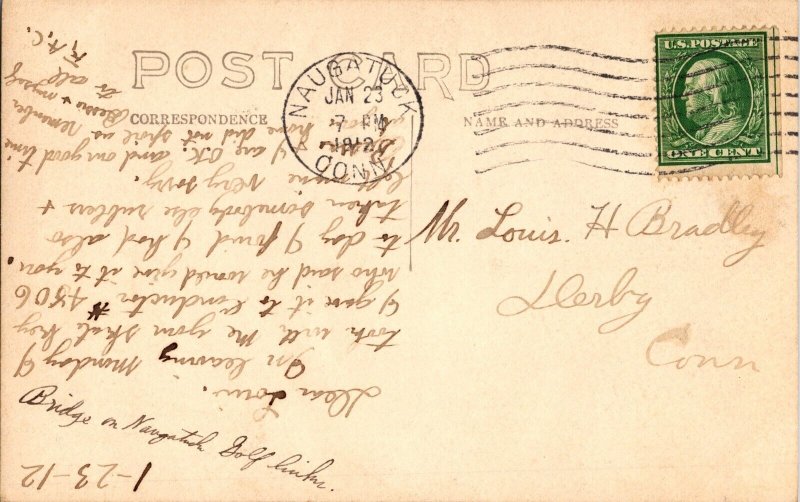 POST CARD
CORRESPONDENCE
NAME AND ADDRESS
NAUGATUCK
JAN 23
7 PM
1912
CONN
U.S. POSTAGE
ONE CENT
Mr. Louis. H Bradley
Derby
Conn
1-23-12
Dear Lou.
In leaving Monday I
took with me your skate key
I gave it to Conductor #4806
who said he would give it to you.
to day I found I had also
taken somebody else rubbers +
am very sorry.
I am O.K. and our good time
did not spoil us remember
+ myself
to all
Bridge on Naugatuck Golf links.